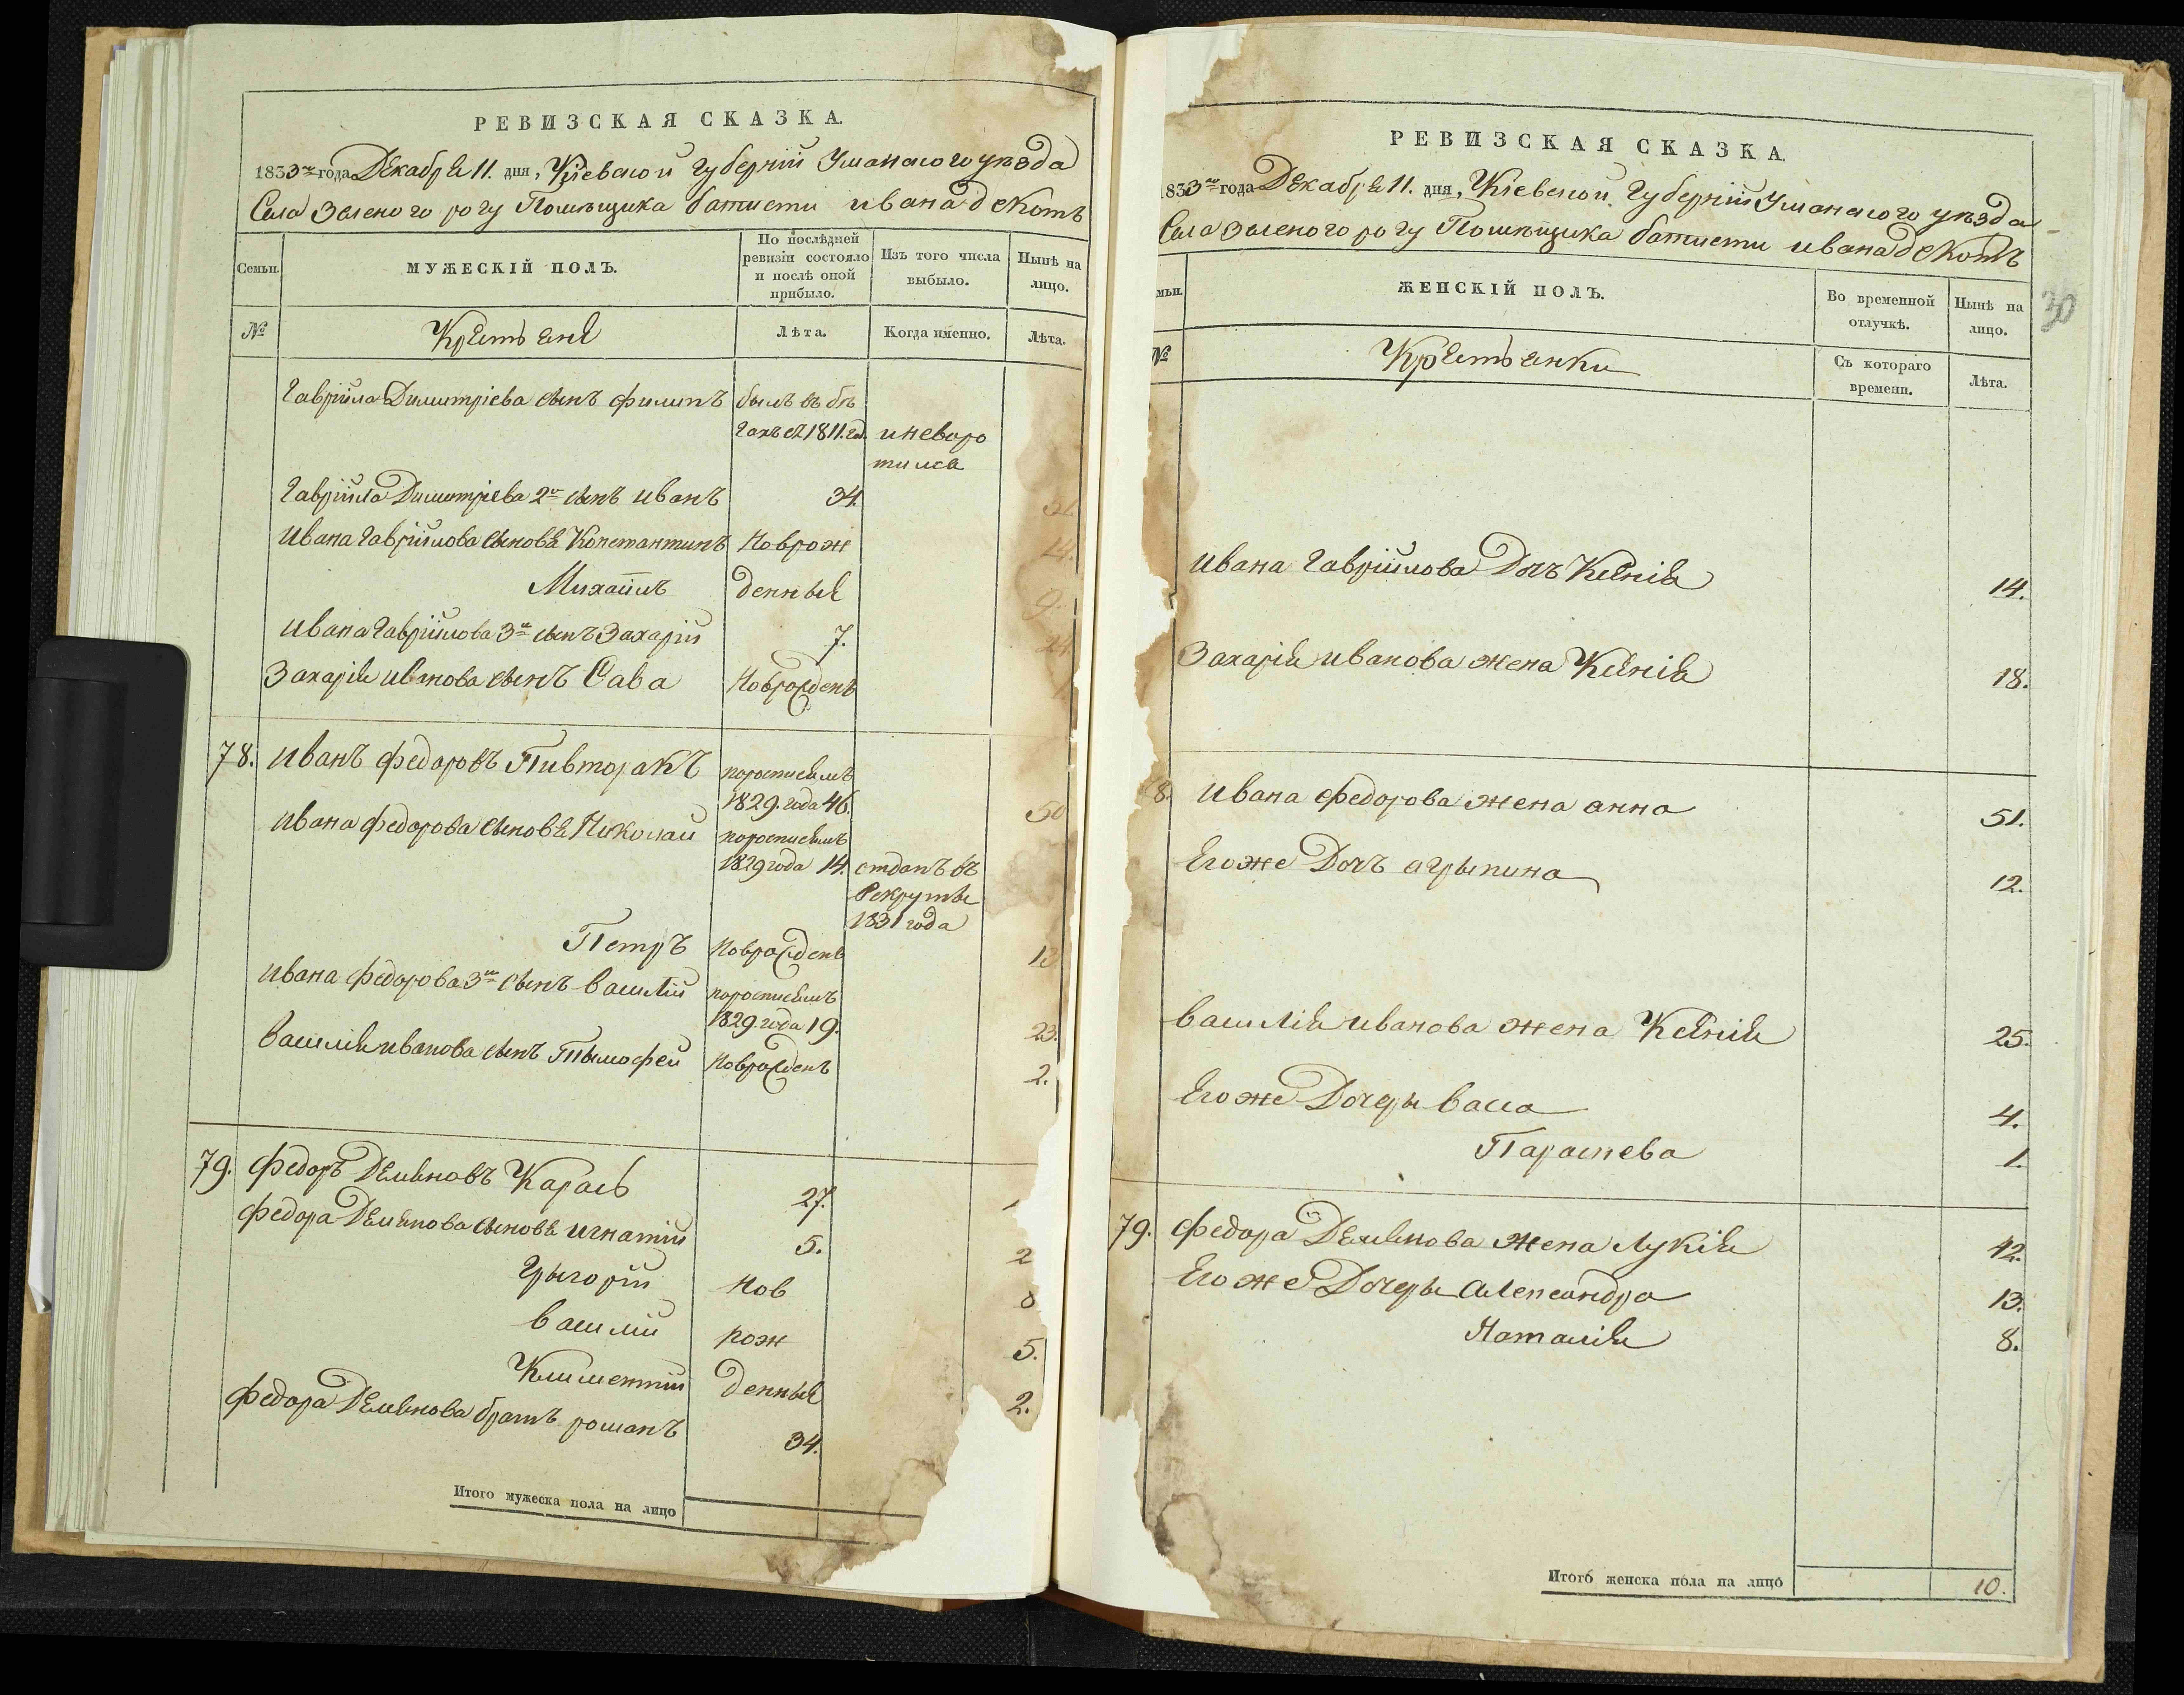 РЕВИЗСКАЯ СКАЗКА.
1833го года Декабря 11. дня, Кіевской губерніи Уманского уѣзда
Села Зеленого рогу Помѣщика батисти ивана
Семьи.
МУЖЕСКІЙ ПОЛЪ.
По послѣдней ревизіи состояло и послѣ оной прибыло.
Изъ того числа выбыло.
Нынѣ на лицо.
№
Крестьяне
Лѣта.
Когда именно.
Лѣта.
Гавріила Димитріева сынъ филипъ былъ въ бѣ
гахъ съ 1811. год. и неворо
тился
Гавріила Димитріева 2й сынъ иванъ 34.
Ивана Гавріилова сыновя Константинъ Новрож 14.
Михаилъ денныя 9.
ивана Гавріилова 3й сынъ Захарій 7. 24
Захарія иванова сынъ Сава Новрожденъ
78. иванъ федоровъ Пивторакъ пороспискамъ
1829. года 46. 50
ивана федорова сыновя Николай пороспискамъ
1829 года 14. отданъ въ
Рекруты
1831 года
Петръ новрожденъ 13
ивана федорова 3й сынъ василій пороспискамъ
1829. года 19. 23.
василія иванова сынъ Тымофей новрожденъ 2.
79. федоръ Демяновъ Карась 27.
федора Демянова сыновя игнатій 5. 2
Грыгорій нов 8
василій рож 5.
Климентій денныя 2.
федора Демянова братъ романъ 34.
Итого мужеска пола на лицо
РЕВИЗСКАЯ СКАЗКА.
1833го года Декабря 11. дня, Кіевской губерніи Уманского уѣзда
Села Зеленого рогу Помѣщика батисти ивана
30
мьи.
ЖЕНСКІЙ ПОЛЪ.
Во временной отлучкѣ.
Нынѣ на лицо.
№
Крестьянки
Съ котораго времени.
Лѣта.
ивана Гавріилова Дочъ Ксенія 14.
Захарія иванова жена Ксенія 18.
8. ивана федорова жена анна 51.
Егоже Дочъ агрыпина 12.
василія иванова жена Ксенія 25.
Егоже Дочеры васа 4.
Парастева 1.
79. федора Демянова жена Лукія 42.
Егоже Дочеры александра 13.
Наталія 8.
Итого женска пола на лицо 10.